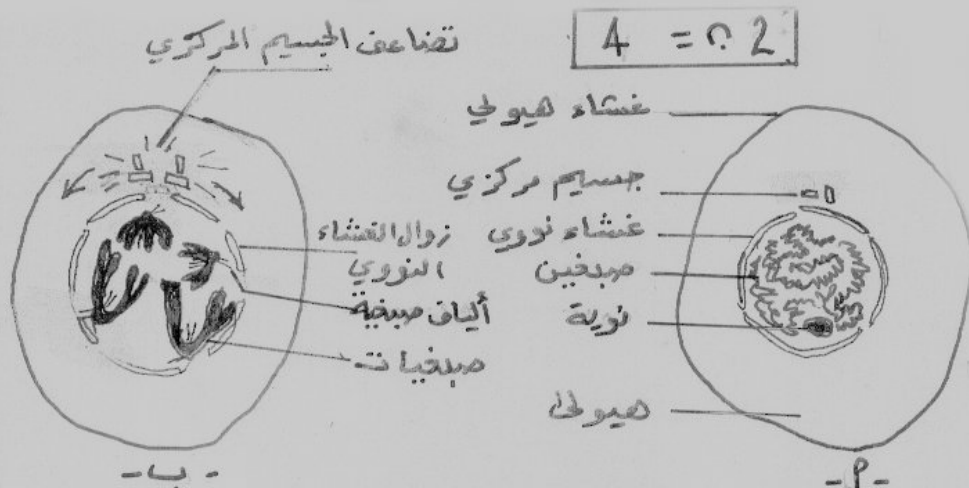 2 ن = 4
غشاء هيولي
جسيم مركزي
غشاء نووي
صبغين
نوية
هيولى
- أ -
تضاعف الجسيم المركزي
زوال الغشاء
النووي
ألياف صبغية
صبغيات
- ب -